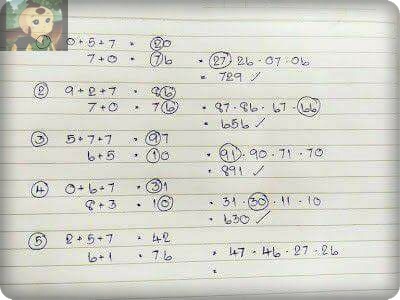 ① 0+5+7 = 20
7+0 = 76 = 27 · 26 · 07 · 06
= 729 ✓
② 9+2+7 = 86
7+0 = 76 = 87 · 86 · 67 · 66
= 656 ✓
③ 5+7+7 = 97
6+5 = 10 = 91 · 90 · 71 · 70
= 891 ✓
④ 0+6+7 = 31
8+3 = 10 = 31 · 30 · 11 · 10
= 630 ✓
⑤ 2+5+7 = 42
6+1 = 76 = 47 · 46 · 27 · 26
=